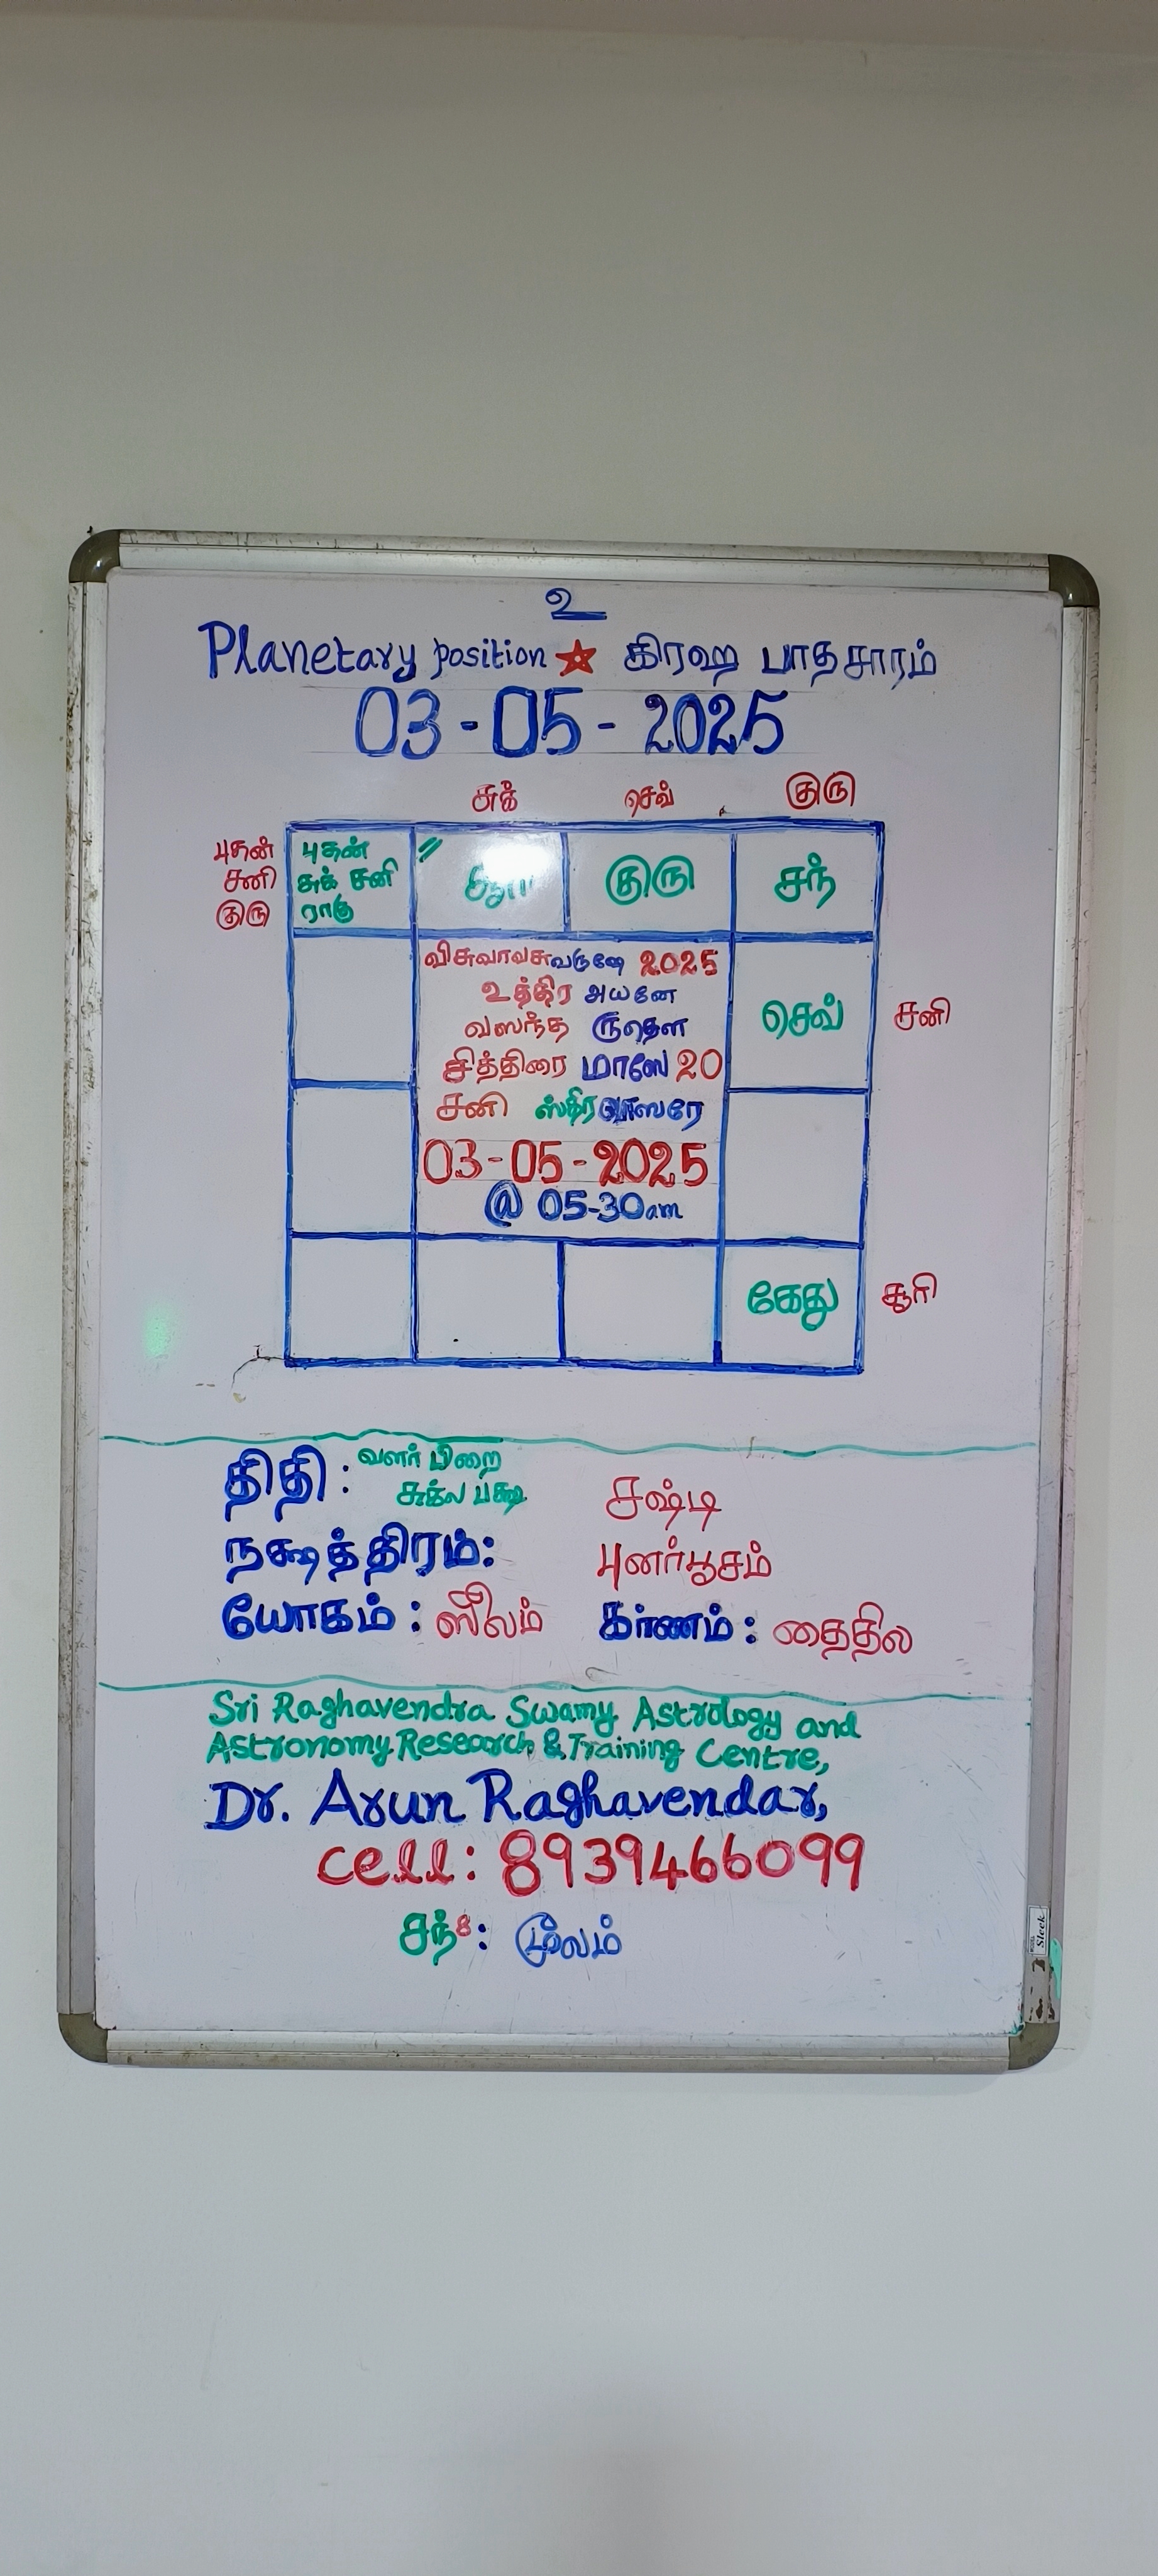 உ
Planetary position ★ கிரஹ பாதசாரம்
03-05-2025
சுக் செவ் குரு
புதன் புதன்
சனி சுக் சனி குரு சந்
குரு ராகு
விசுவாவசுவருஷே 2025
உத்திர அயனே
வஸந்த ருதௌ
செவ் சனி
சித்திரை மாஸே 20
சனி ஸ்திரவாஸரே
03-05-2025
@ 05-30am
கேது சூரி
திதி : வளர் பிறை
சுக்ல பக்ஷ சஷ்டி
நக்ஷத்திரம்: புனர்பூசம்
யோகம் : ஸூலம் கர்ணம் : தைதில
Sri Raghavendra Swamy Astrology and
Astronomy Research & Training Centre,
Dr. Arun Raghavendar,
Cell: 8939466099
சந்8: மூலம்
Sleek